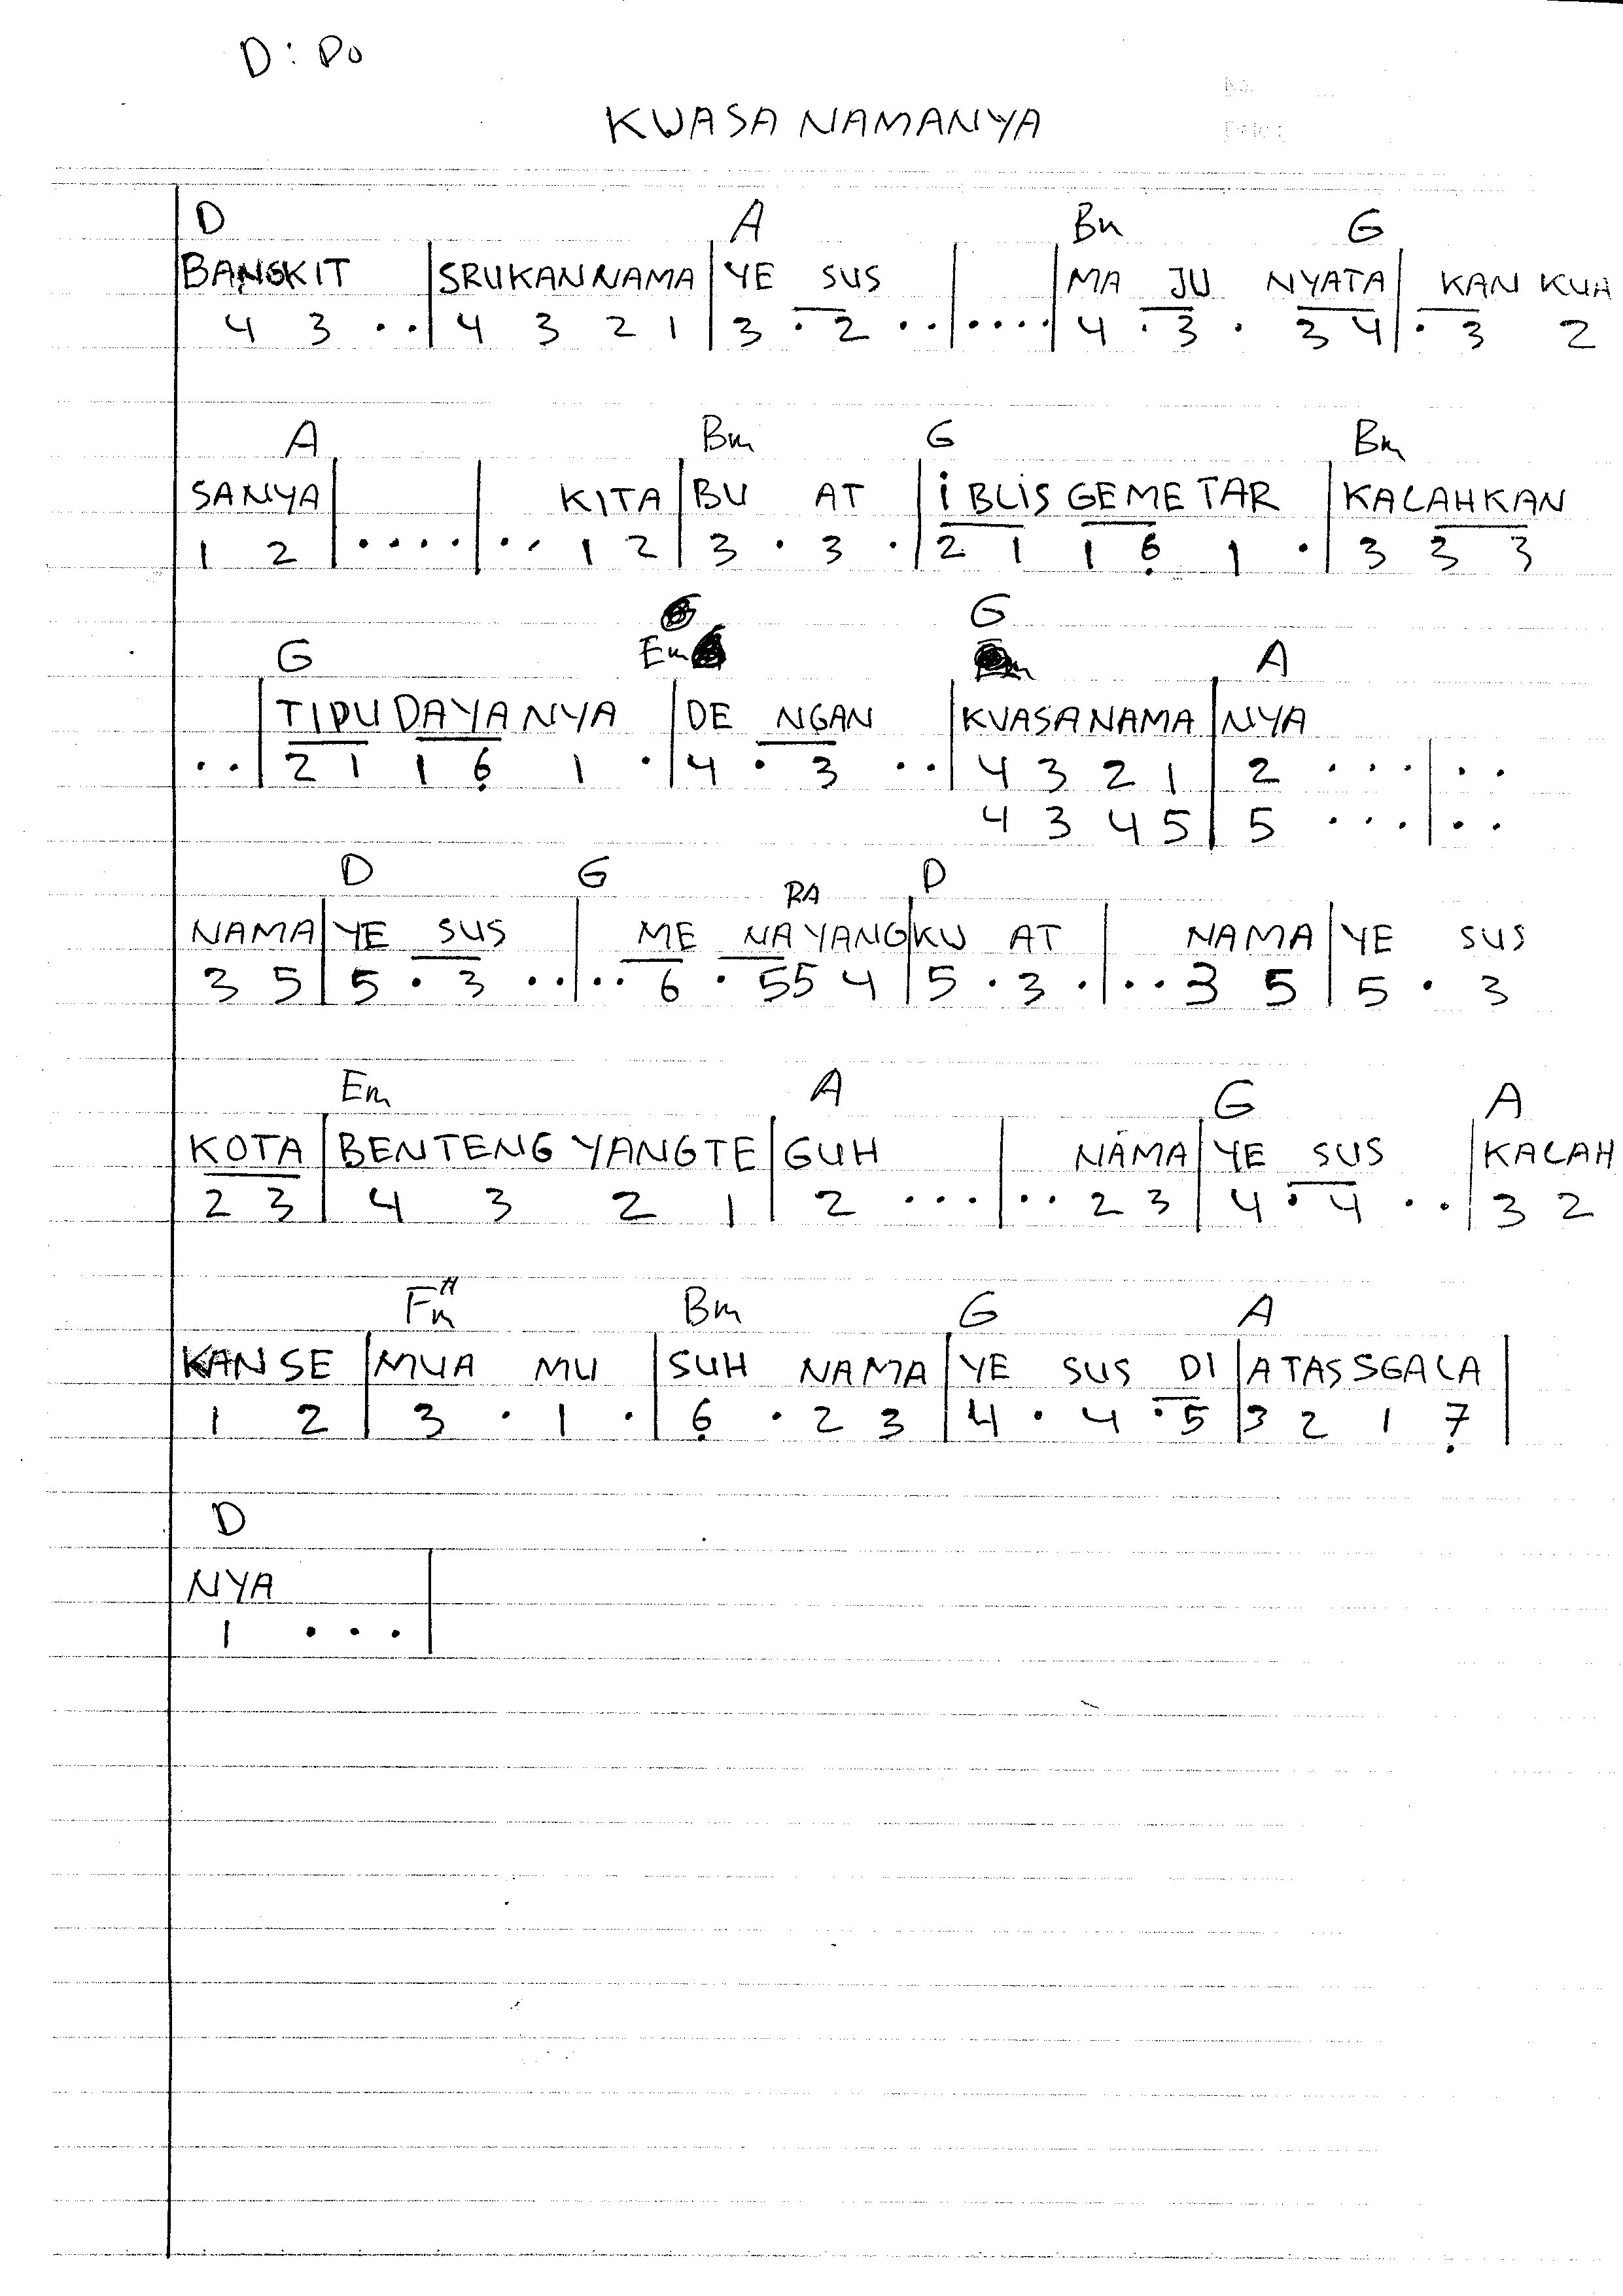 D : DO
KUASA NAMANYA
D A Bm G
BANGKIT | SRUKAN NAMA | YE SUS | | MA JU NYATA | KAN KUA
4 3 . . | 4 3 2 1 | 3 . 2 . . | . . . . | 4 . 3 . 3 4 | . 3 2
A Bm G Bm
SANYA | | KITA | BU AT | iBLIS GEMETAR | KALAHKAN
1 2 | . . . . | . . 1 2 | 3 . 3 . | 2 1 1 6̣ 1 . | 3 3 3
G
G Em A
| TIPU DAYA NYA | DE NGAN | KUASA NAMA | NYA
. . | 2 1 1 6̣ 1 . | 4 . 3 . . | 4 3 2 1 | 2 . . . | . .
4 3 4 5 | 5 . . . | . .
D G D
RA
NAMA | YE SUS | ME NA YANG | KU AT | NAMA | YE SUS
3 5 | 5 . 3 . . | . . 6 . 5 5 4 | 5 . 3 . | . . 3 5 | 5 . 3
Em A G A
KOTA | BENTENG YANG TE | GUH | NAMA | YE SUS | KALAH
2 3 | 4 3 2 1 | 2 . . . | . . 2 3 | 4 . 4 . . | 3 2
F#m Bm G A
KAN SE | MUA MU | SUH NAMA | YE SUS DI | ATAS SGALA |
1 2 | 3 . 1 . | 6̣ . 2 3 | 4 . 4 . 5 | 3 2 1 7̣ |
D
NYA |
1 . . . |